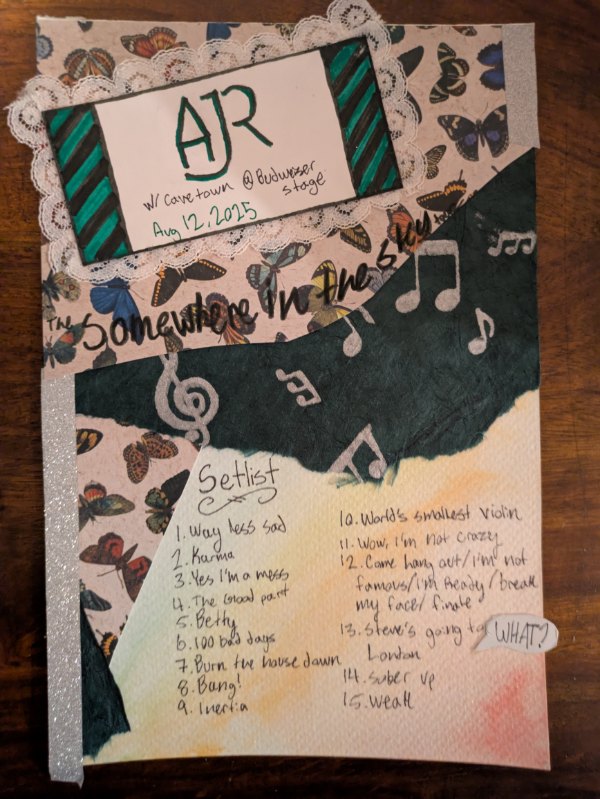 AJR
w/ Cavetown @ Budweiser
stage
Aug 12, 2025
The Somewhere in the Sky tour
Setlist
1. Way less sad
2. Karma
3. Yes I'm a mess
4. The Good part
5. Betty
6. 100 bad days
7. Burn the house down
8. Bang!
9. Inertia
10. World's smallest violin
11. Wow, i'm not crazy
12. Come hang out/i'm not
famous/i'm Ready/break
my face/finale
13. Steve's going to
London
WHAT?
14. Sober up
15. Weak